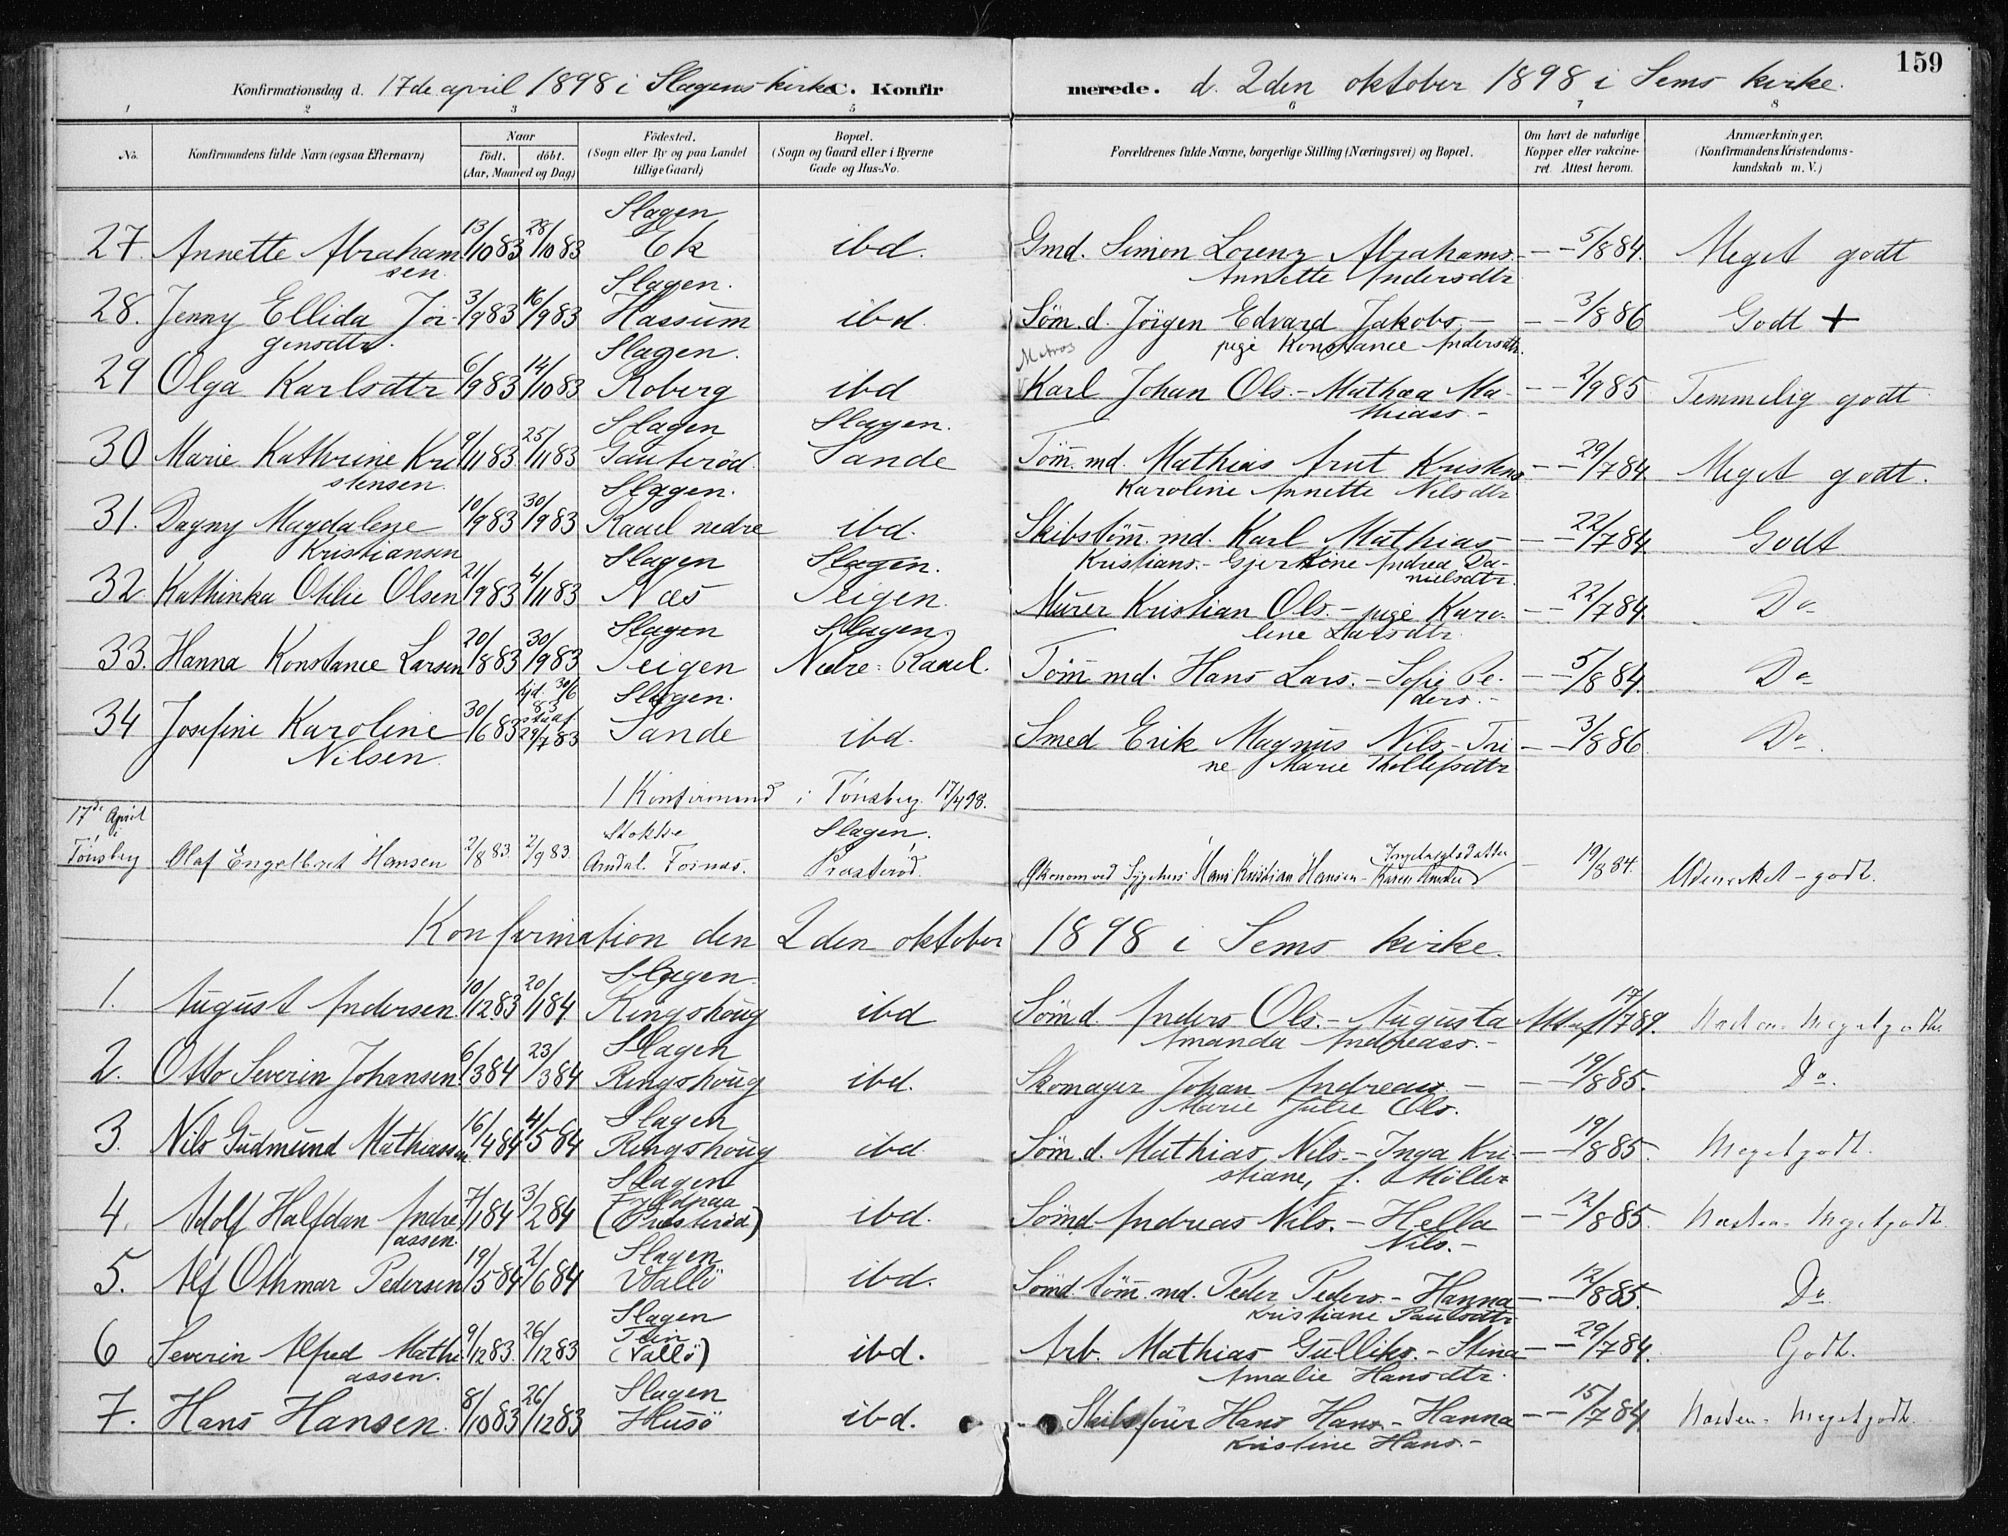 159
Konfirmationsdag d. 17de april 1898 i Slagens kirke C. Konfirmerede. d. 2den oktober 1898 i Sems kirke.
1 2 3 5 6 7 8
No. Konfirmandens fulde Navn (ogsaa Efternavn) Naar födt. döbt. (Aar, Maaned og Dag) Födested. (Sogn eller By og paa Landet tillige Gaard) Bopæl. (Sogn og Gaard eller i Byerne Gade og Hus-No. Forældrenes fulde Navne, borgerlige Stilling (Næringsvei) og Bopæl. Om havt de naturlige Kopper eller vakcineret. Attest herom. Anmærkninger. (Konfirmandens Kristendomskundskab m. V.)
Slagen
27. Annette Abraham 13/10 83 28/10 83 Ek ibd. Gmd. Simon Lorenz Abrahams. - 5/8 84. Meget godt
sen. Annette Andersdtr
Slagen.
28. Jenny Ellida Jör- 3/9 83 16/9 83 Hassum ibd. Söm.d. Jörgen Edvard Jakobs. - 3/8 86 Godt +
gensdtr. pige Konstance Andersdtr.
Slagen. Matros
29 Olga Karlsdtr 6/9 83 14/10 83 Roberg ibd Karl Johan Ols. - Mathea Ma- 2/9 85 Temmelig godt
thiass.-
Slagen Slagen.
30 Marie Kathrine Kri 9/11 83 25/11 83 Gauteröd. Sande Töm̄.md. Mathias Arnt Kristens - 29/7 84 Meget godt.
stensen. Karoline Annette Nilsdtr
Slagen.
31. Dagny Magdalene 10/9 83 30/9 83 Raael nedre ibd. Skibstöm̄.md. Karl Mathias - 22/7 84 Godt
Kristiansen Kristians. - Gjertine Andrea Da-
nielsdtr.
Slagen Slagen.
32 Kathinka Othlie Olsen 21/9 83 4/11 83 Næs Teigen. Mürer Kristian Ols. - pige Karo- 22/7 84. Do
line Larsdtr.
Slagen Slagen.
33. Hanna Konstance Larsen 20/8 83 30/9 83 Teigen Nedre Raael. Töm̄ md. Hans Lars. - Sofie Pe- 5/8 84. Do
ders.-
Slagen.
34 Josefine Karoline 30/6 83 hjd. 30/6 83 stadf. 29/7 83 Sande ibd. Smed Erik Magnus Nils. - Tri- 3/8 86 Do
Nilsen. ne Marie Thollefsdtr
1 Konfirmand i Tönsberg 17/4 98.
17de April i Tönsberg Olaf Engelbret Hansen 2/8 83. 2/9 83. Stokke Arndal Fornæs. Slagen. Præsteröd. Økonom ved Sygehus. Hans Kristian Hansen - Karen Ingeborgsdatter - 19/8 84. Udmerket - godt.
Konfirmation den 2den oktober 1898 i Sems kirke.
Slagen.
1. August Andersen. 10/12 83 20/1 84 Ringshoug ibd Sömd. Anders Ols. - Augusta Attest 17/7 89. Næsten Meget godt.
Amanda Andreass.-
Slagen
2. Otto Severin Johansen. 6/3 84 23/3 84 Ringshoug ibd. Skomager Johan Andreass. - 19/8 85. Do.
Marie Julie Ols.
Slagen
3. Nils Gudmund Mathiassen 16/4 84 4/5 84 Ringshoug ibd. Söm.d. Mathias Nils. - Inga Kri- 19/8 85. Meget godt.
stiane, f. Möller
Slagen
4. Adolf Halfdan Andre 7/1 84 3/2 84 Fyldpaa (Presteröd) ibd. Sömd. Andreas Nils. - Hella - 12/8 85. Næsten Meget godt.
assen. Nils.-
Slagen
5. Alf Othmar Pedersen 19/5 84 2/6 84 Vallö ibd. Sömd. töm̄.md. Peder Peders. - Hanna - 12/8 85. Do
Kristiane Paulsdtr
Slagen
6 Severin Alfred Mathi 9/12 83. 26/12 83 (Vallö) ibd. Arb. Mathias Gulliks. - Stina - 29/7 84. Godt.
assen. Amalie Hansdtr.
Slagen
7. Hans Hansen. 8/10 83 26/12 83 Husö ibd. Skibsförer Hans Hans. - Hanna - 15/7 84. Næsten Meget godt.
Kristine Hans.-